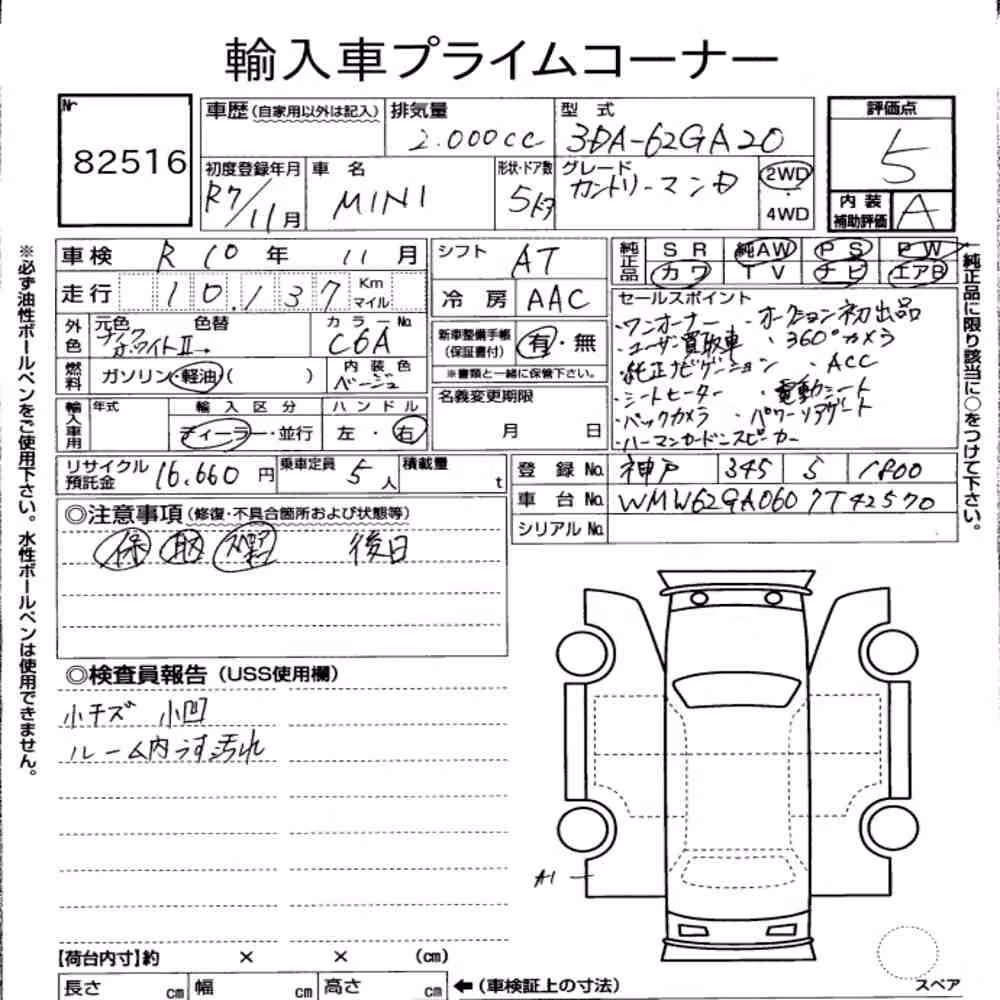 輸入車プライムコーナー
Nr
82516
車歴(自家用以外は記入)
排気量
2.000cc
型式
3DA-62GA20
評価点
5
初度登録年月
R7/11月
車名
MINI
形状・ドア数
5ドア
グレード
カントリーマンD
2WD
・
4WD
内装
補助評価
A
車検 R10年 11月
シフト AT
純正品 SR 純AW PS PW
カワ TV ナビ エアB
走行 10,137 Km マイル
冷房 AAC
セールスポイント
・ワンオーナー ・オークション初出品
・ユーザー買取車 ・360°カメラ
・純正ナビゲーション ・ACC
・シートヒーター ・電動シート
・バックカメラ ・パワーリアゲート
・ハーマンカードンスピーカー
外色 元色 色替
ホワイトII
カラーNo.
C6A
新車整備手帳
(保証書付)
有・無
※書類と一緒に保管下さい。
燃料 ガソリン・軽油( )
内装色
ベージュ
名義変更期限
月 日
輸入車用 年式 輸入区分 ハンドル
ディーラー・並行 左・右
リサイクル
預託金
16,660円
乗車定員 5人
積載量 t
登録No. 神戸 345 る 1800
車台No. WMW62GA0607T42570
シリアルNo.
◎注意事項(修復・不具合箇所および状態等)
保 取 後日
◎検査員報告(USS使用欄)
小キズ 小凹
ルーム内うす汚れ
A1
【荷台内寸】約 × × (cm)
長さ cm 幅 cm 高さ cm
←(車検証上の寸法)
スペア
※必ず油性ボールペンをご使用下さい。水性ボールペンは使用できません。
純正品に限り該当に○をつけて下さい。